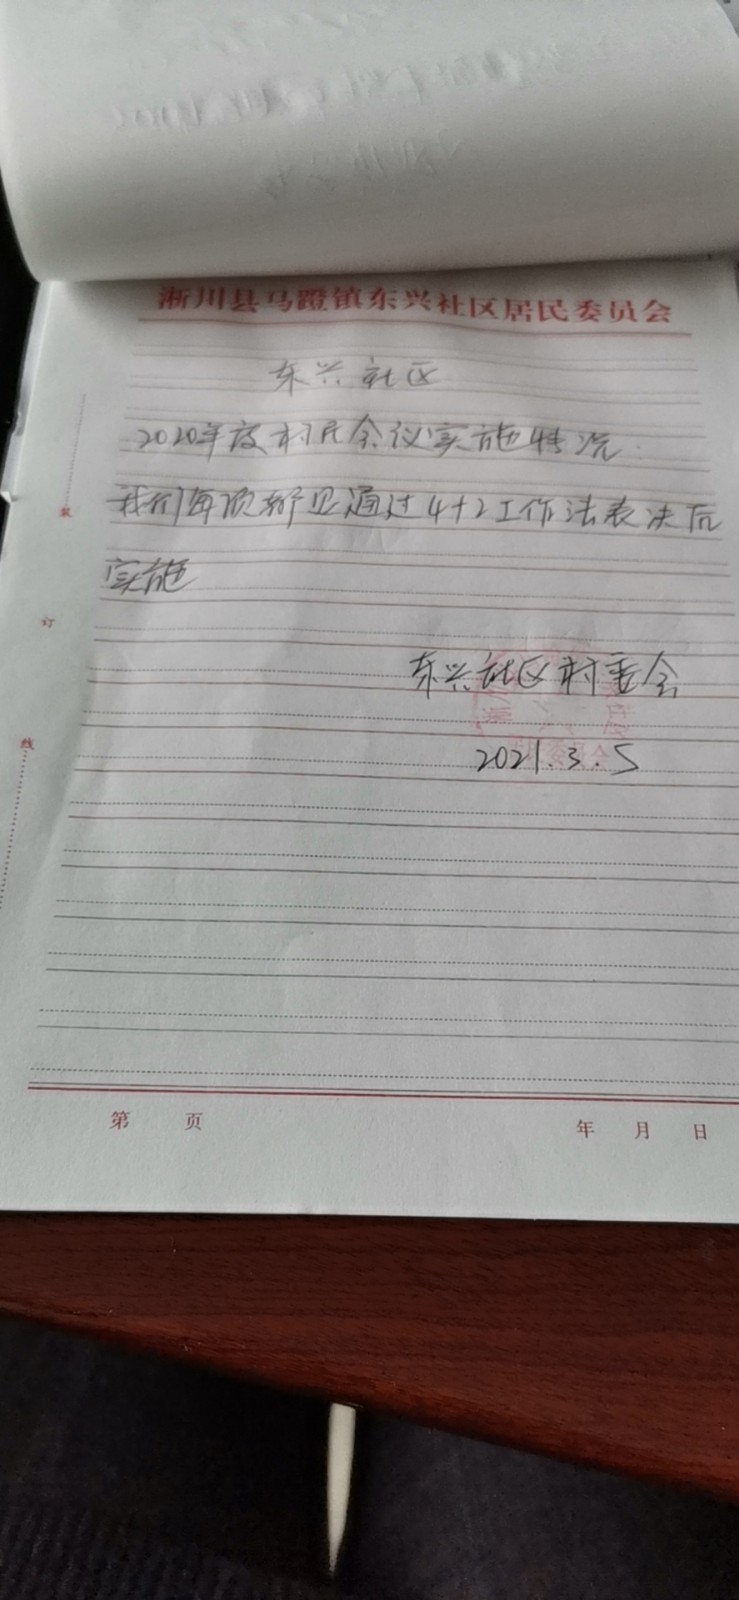 淅川县马蹬镇东兴社区居民委员会
东兴社区
2020年度村民会议实施情况
我们每项都见通过4+2工作法表决后
实施
东兴社区村委会
2021.3.5
装
订
线
第 页 年 月 日